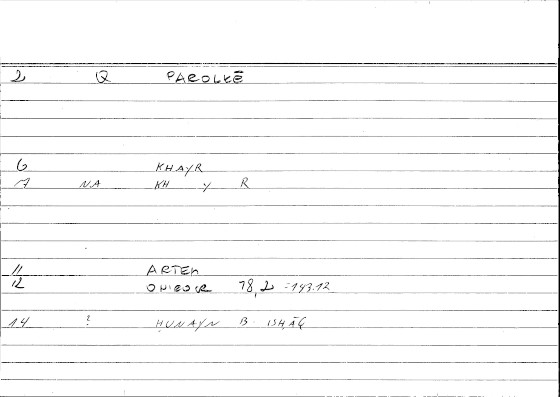 2 Q PAROLKĒ
6 KHAYR
7 NA KH Y R
11 ARTEM
12 78,2 =143.12
14 ? ḤUNAYN B. ISḤĀQ